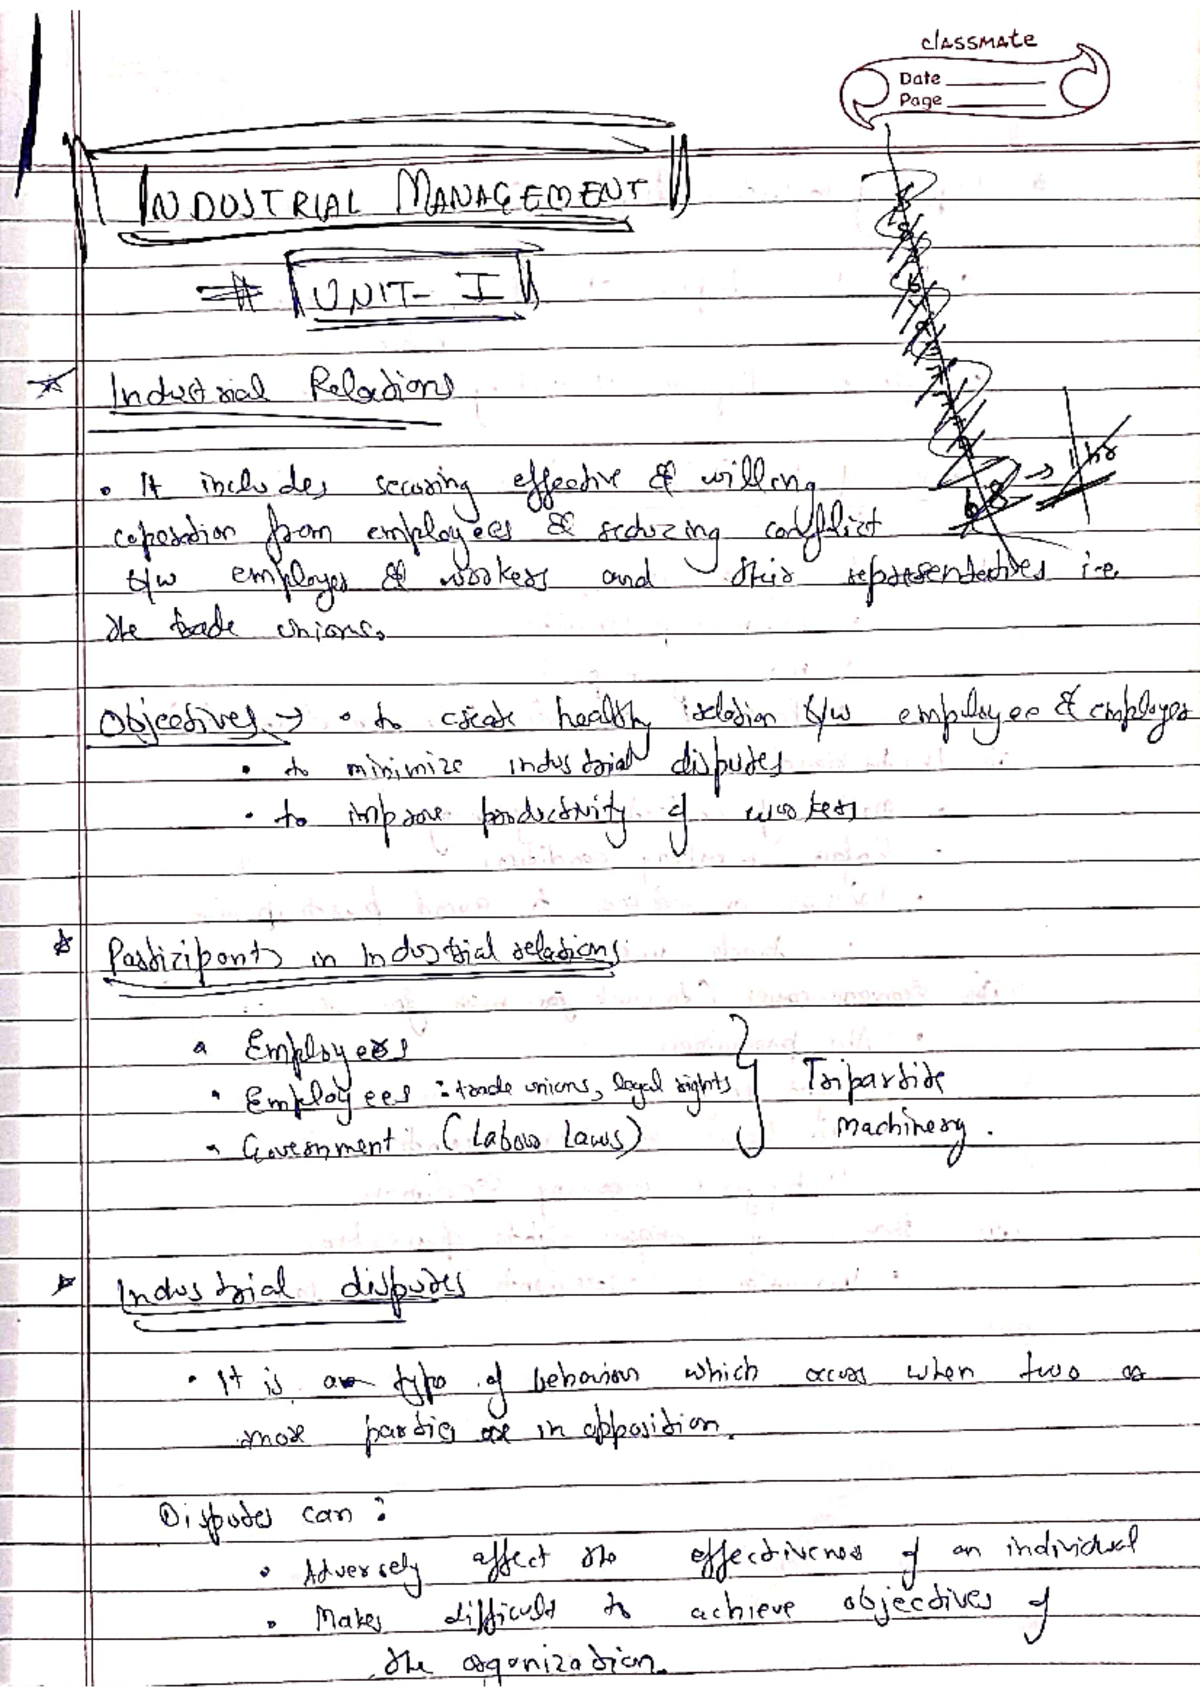 classmate
Date
Page
INDUSTRIAL MANAGEMENT
# UNIT- I
Industrial Relations
• It includes securing effective & willing
coperation from employees & reducing conflict
b/w employer & workers and their representatives i.e.
the trade unions.
Objectives → • to create healthy relation b/w employee & employer
• to minimize industrial disputes
• to improve productivity of workers
Participants in Industrial relations
• Employers
• Employees : trade unions, legal rights
• Government (Labour Laws)
} Tripartite
Machinery.
Industrial disputes
• It is a type of behaviour which occurs when two or
more parties are in opposition.
Disputes can :
• Adversely affect the effectiveness of an individual
• Makes difficult to achieve objectives of
the organization.
68 → 1 hr